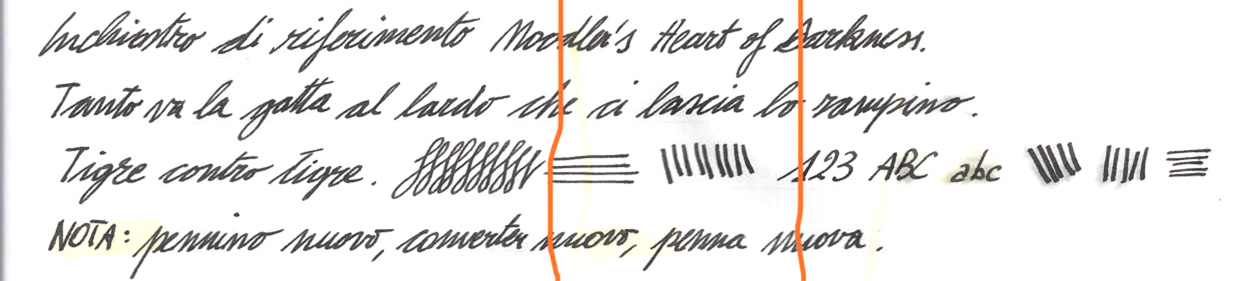 Inchiostro di riferimento Noodler's Heart of Darkness.
Tanto va la gatta al lardo che ci lascia lo zampino.
Tigre contro tigre. 123 ABC abc
NOTA: pennino nuovo, converter nuovo, penna nuova.